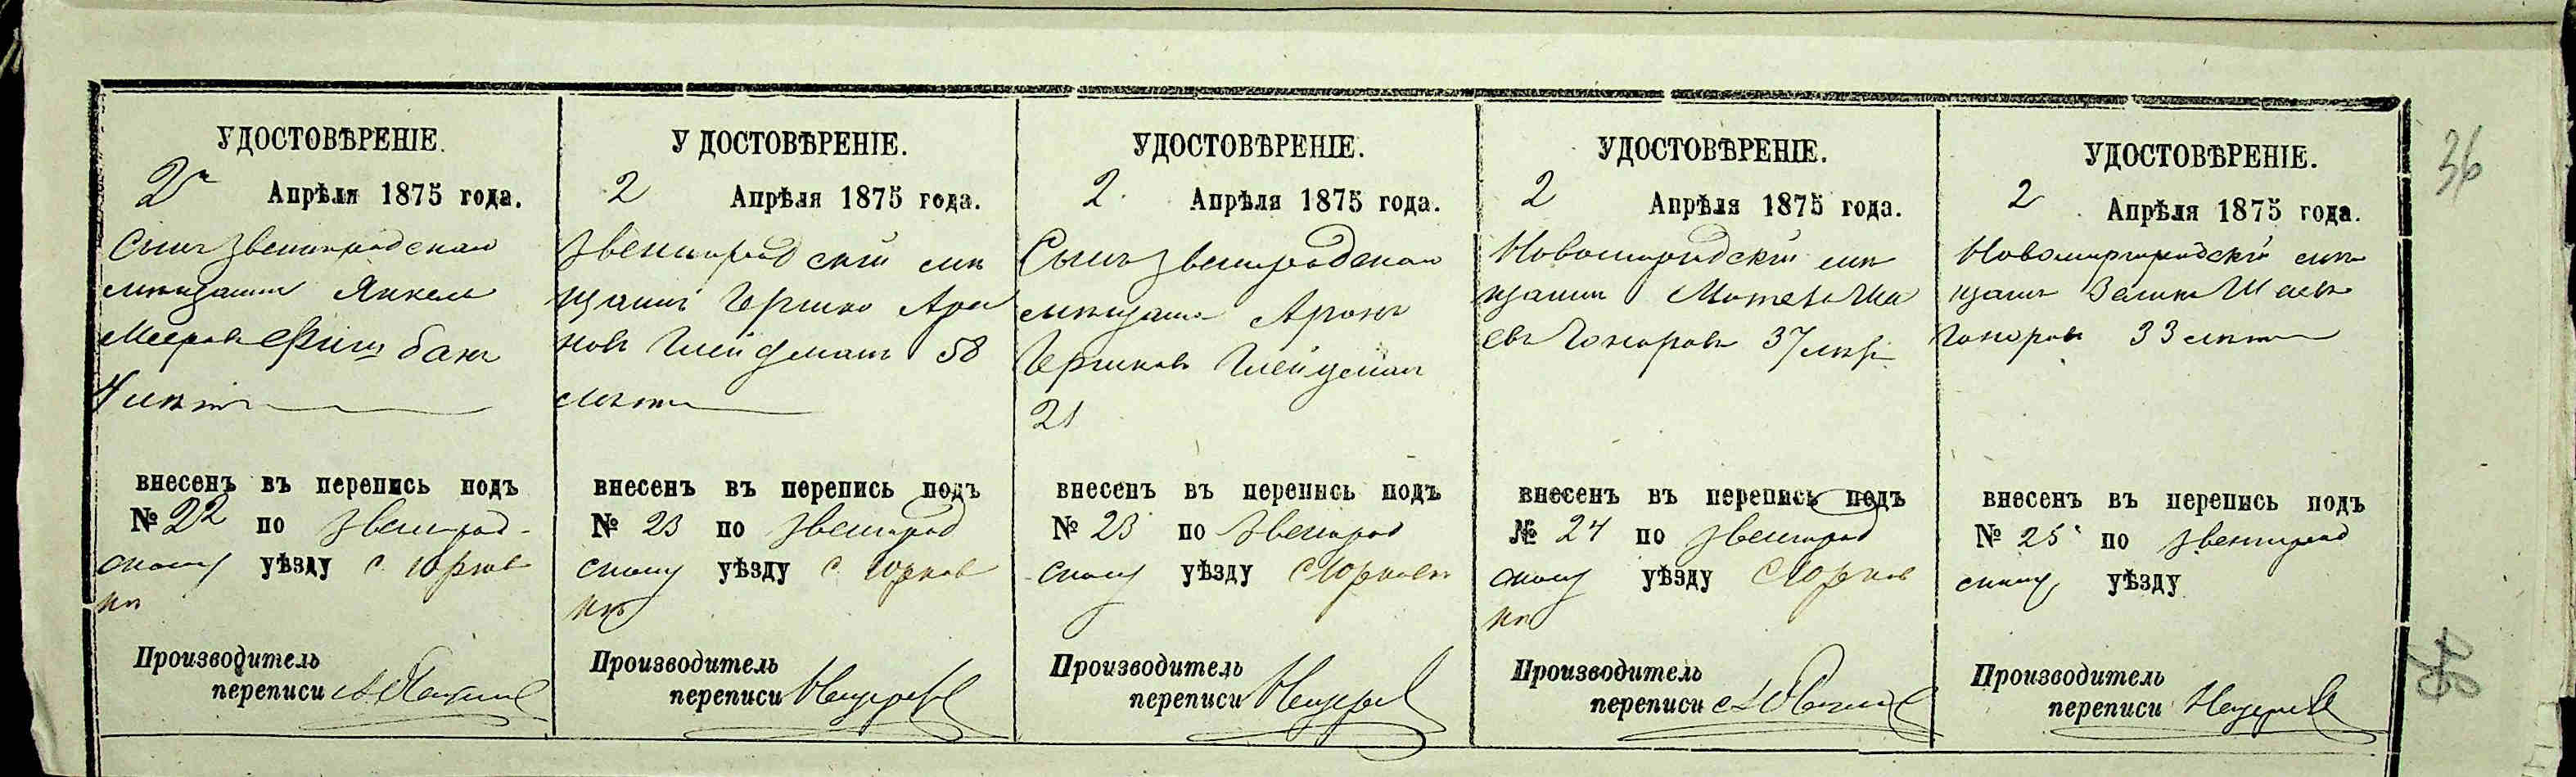 36
УДОСТОВѢРЕНІЕ.
2го Апрѣля 1875 года.
Сынъ Звенигородскаго
мѣщанина Янкель
Мееровъ Фишбанъ
4 лѣтъ
внесенъ въ перепись подъ
№ 22 по Звенигород-
скому уѣзду с. Юрков
кѣ
Производитель
переписи
УДОСТОВѢРЕНІЕ.
2 Апрѣля 1875 года.
Звенигородскій мѣ
щанинъ Гершко Аро
новъ Глейзманъ 58
лѣтъ
внесенъ въ перепись подъ
№ 23 по Звенигород
скому уѣзду с. Юрков
кѣ
Производитель
переписи
УДОСТОВѢРЕНІЕ.
2. Апрѣля 1875 года.
Сынъ Звенигородскаго
мѣщанина Аронъ
Гершковъ Глейзман
21
внесенъ въ перепись подъ
№ 23 по Звенигород
скому уѣзду с Юрковкѣ
Производитель
переписи
УДОСТОВѢРЕНІЕ.
2 Апрѣля 1875 года.
Новомиргородскій мѣ
щанинъ Мотель Ша
евъ Гоноровъ 37 лѣтъ
внесенъ въ перепись подъ
№ 24 по Звенигород
скому уѣзду с Юрков
кѣ
Производитель
переписи
УДОСТОВѢРЕНІЕ.
2 Апрѣля 1875 года.
Новомиргородскій мѣ
щанинъ Шаевъ
Гоноровъ 33 лѣтъ
внесенъ въ перепись подъ
№ 25 по Звенигород
скому уѣзду
Производитель
переписи